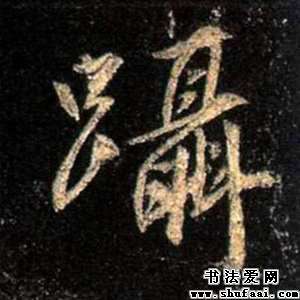 躡
书法爱网
www.shufaai.com